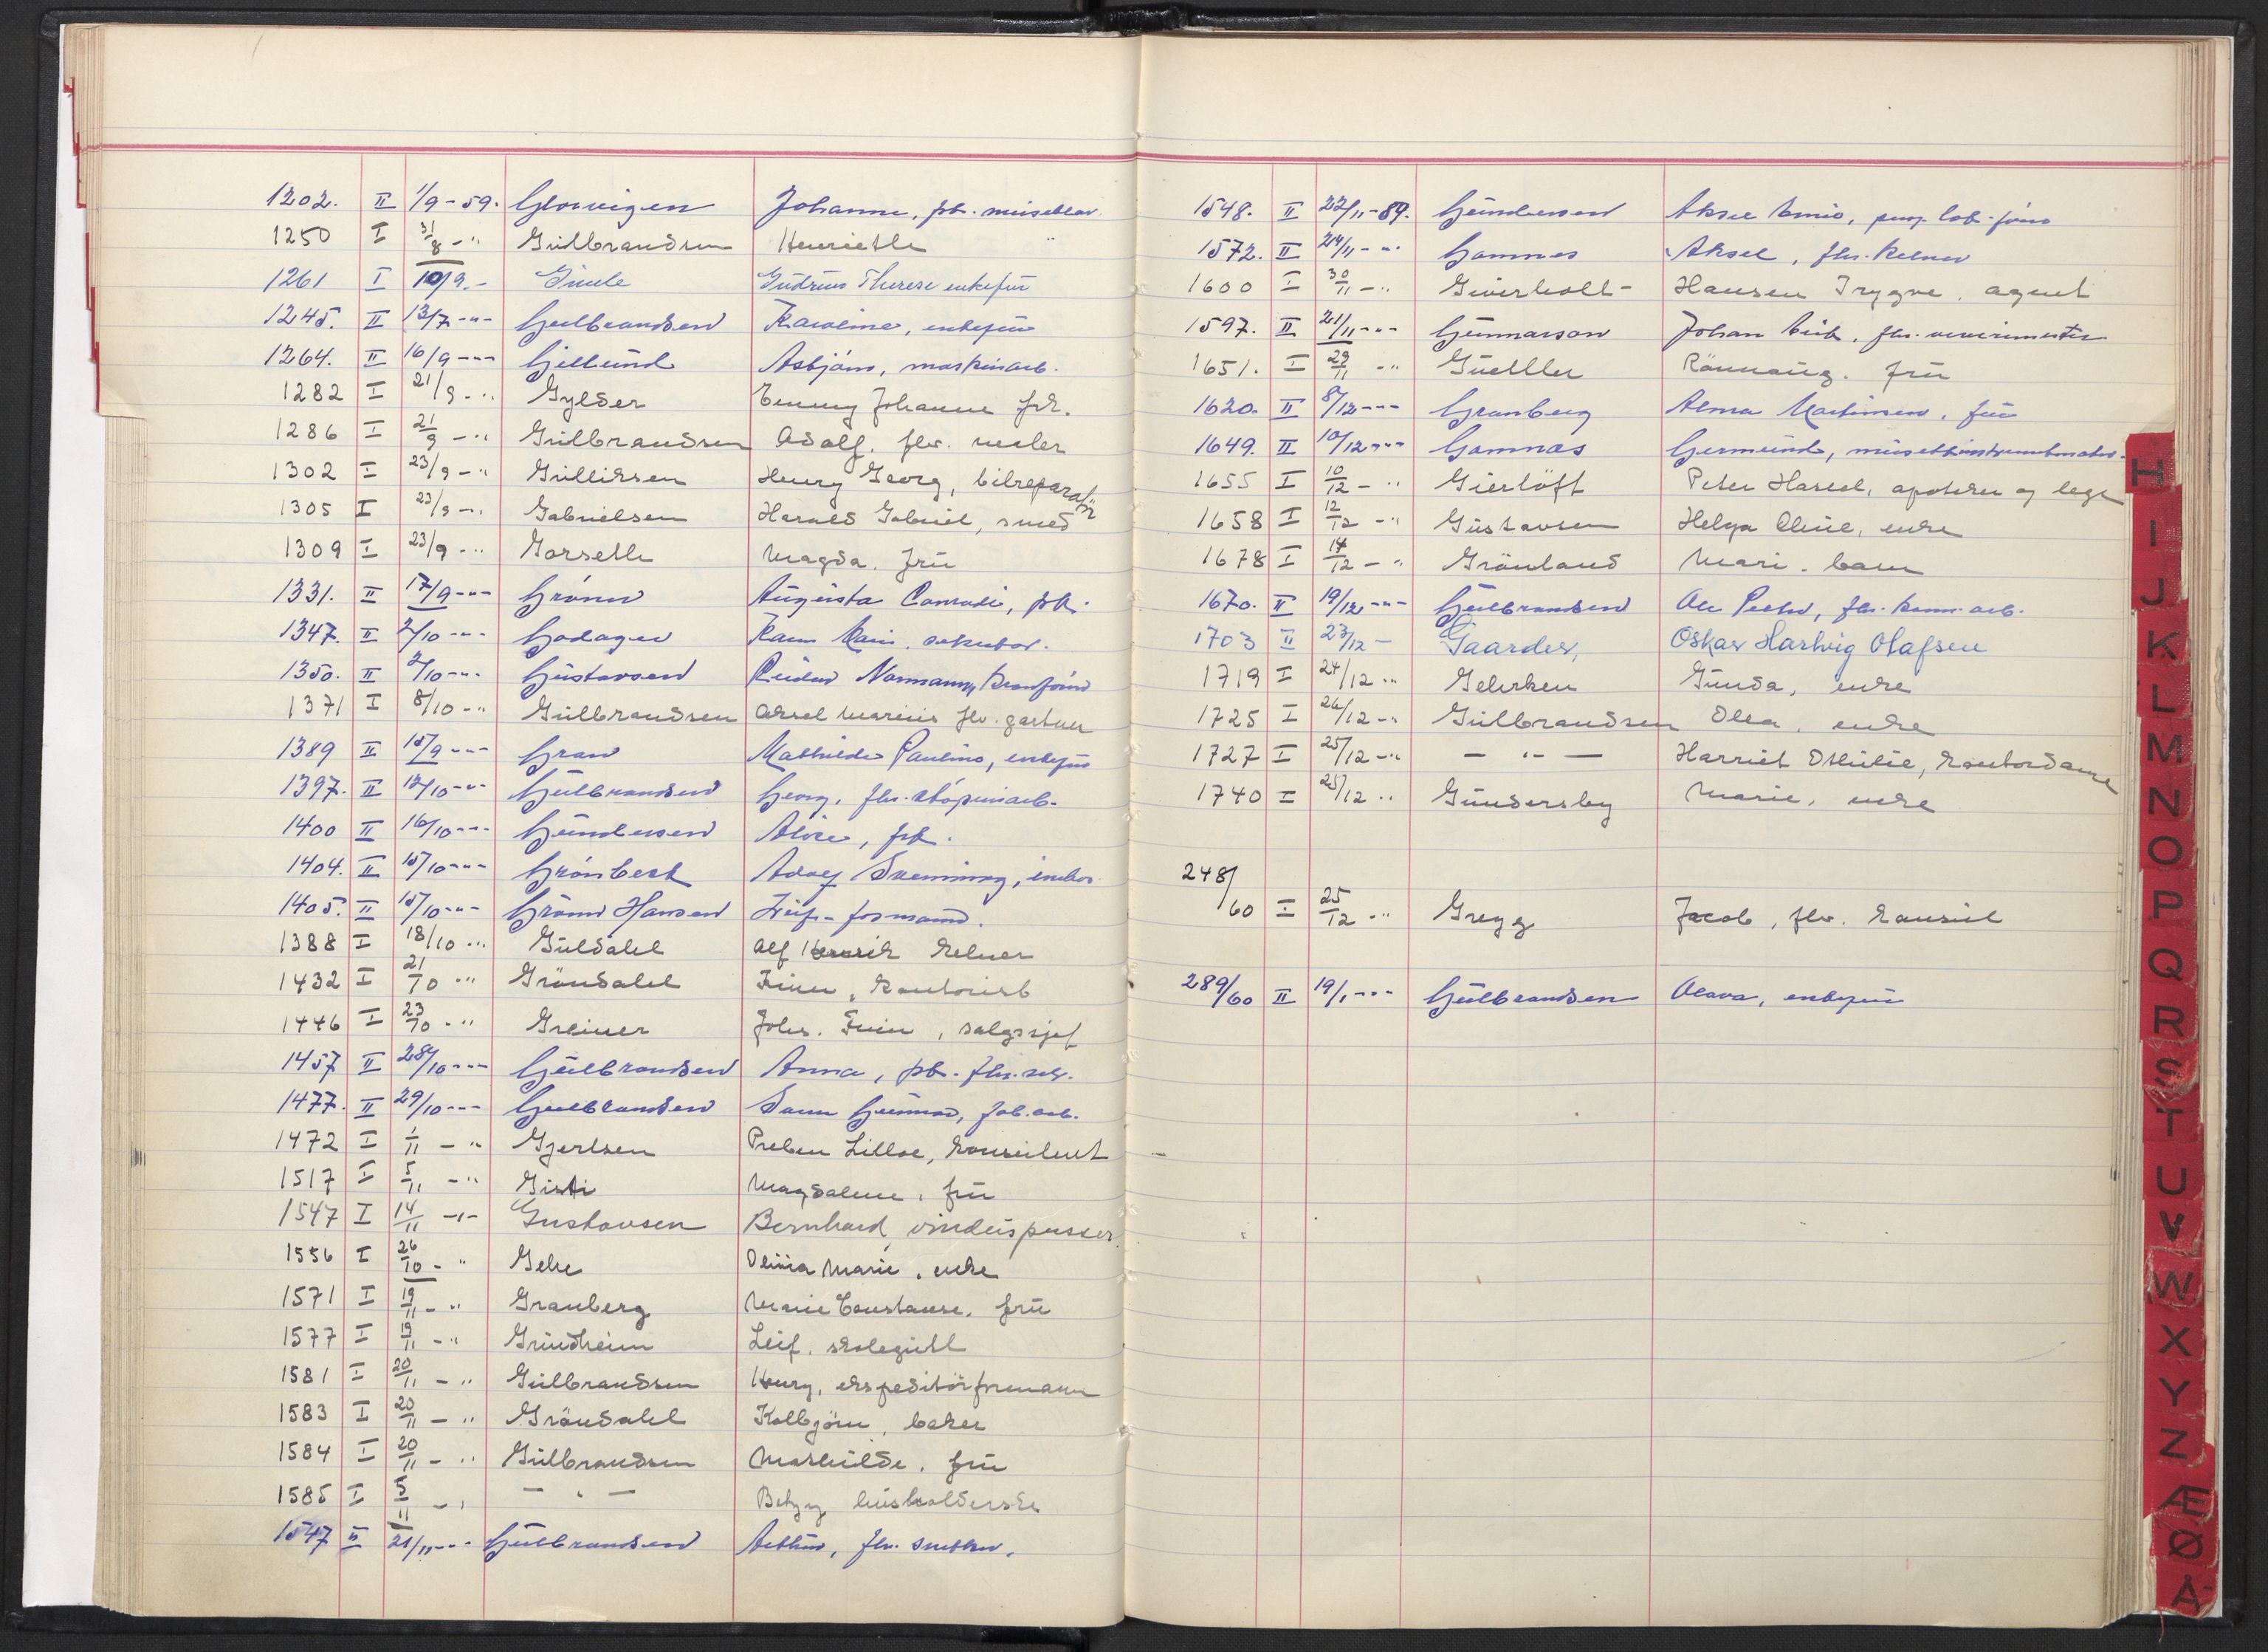 1202. II 1/9-59. Glorvigen Johanne, frk.
1250 I 31/8 - " Gulbrandsen Henriette "
1261 I 10/9 - Gude Gudrun Therese enkefru
1245. II 13/7 - " - Gulbrandsen Karoline, enkefru
1264. II 16/9 - " - Gjellund Asbjörn, maskinarb.
1282 I 21/9 - " Gylder Emmy Johanne frk.
1286 I 21/9 - " Gulbrandsen Adolf, fhv. maler
1302 I 23/9 - " Gulliksen Henry Georg, bilreparatör
1305 I 23/9 - " Gabrielsen Harald Gabriel, smed
1309 I 23/9 - " Gorseth Magda. fru
1331. II 17/9 - " - Grönn Augusta Conradi, frk.
1347. II 2/10 - " - Godager Karen Marie,
1350. II 2/10 - " - Gustavsen Reidar Normann,
1371 I 8/10 - " Gulbrandsen Aksel Marius fhv. gartner
1389 II 15/9 - " - Gran Mathilde Pauline, enkefru
1397. II 12/10 - " - Gulbrandsen Georg, fhv. støperiarb.
1400 II 16/10 - " - Gundersen Alvine, frk.
1404. II 15/10 - " - Grönbeck Adolf Svenning,
1405. II 15/10 - " - Grönn Hansen formann.
1388 I 18/10 - " Guldahl Alf Henrik kelner
1432 I 21/10 - " Gröndahl Finn, kontorist
1446 I 23/10 - " Greiner Johs. Finn, salgssjef
1457 II 28/10 - " - Gulbrandsen Anna, frk. fhv.
1477. II 29/10 - " - Gulbrandsen Gunnar, fab.arb.
1472 I 1/11 - " Gjertsen Preben Lilloe, konsulent
1517 I 5/11 - " Gisti Magdalene, fru
1547 I 14/11 - " - Gustavsen Bernhard, vinduspusser.
1556 I 26/10 - " Gehe Olivia Marie, enke
1571 I 19/11 - " Granberg Marie Constanse. fru
1577 I 19/11 - " Grindheim Leif, skolegutt
1581 I 20/11 - " Gulbrandsen Henry, ekspeditörformann
1583 I 20/11 - " Gröndahl Kolbjörn, baker
1584 I 20/11 - " Gulbrandsen Mathilde, fru
1585 I 5/11 - " — " — Betzy husholderske
1547 II 21/11 - " - Gulbrandsen Arthur, fhv. snekker.
1548. II 22/11-59. Gundersen Aksel
1572. II 24/11 - " - Gamnes Aksel, fhv. kelner
1600 I 30/11 - " Giverholt - Hansen Trygve, agent
1597. II 21/11 - " - Gunnarson Johan Erik, fhv.
1651. I 29/11 - " Guettler Rönnaug. fru
1620. II 8/12 - " - Granberg Alma Mathinne, fru
1649. II 10/12 - " - Gamnas Germund, musikkinstrumentmaker.
1655 I 10/12 - " Giertöft Peter Harald, apoteker og lege
1658 I 12/12 - " Gustavsen Helga Oline, enke
1678 I 14/12 - " Grönland Mari. barn
1670. II 19/12 - " - Gulbrandsen Ole Peder, fhv. komm.arb.
1703 II 23/12 - Gaarder, Oskar Hartvig Olafsen
1719 I 24/12 " Gehrken Gunda, enke
1725 I 26/12 - " Gulbrandsen Olea, enke
1727 I 25/12 - " — " — Harriet Othilie, kontordame
1740 I 25/12 " Gundersby Marie, enke
248/60 I 25/12 - " Gregg Jacob, fhv. konsul
289/60 II 19/1 - " - Gulbrandsen Olava, enkefru
H
I
J
K
L
M
N
O
P
Q
R
S
T
U
V
W
X
Y
Z
Æ
Ø
Å